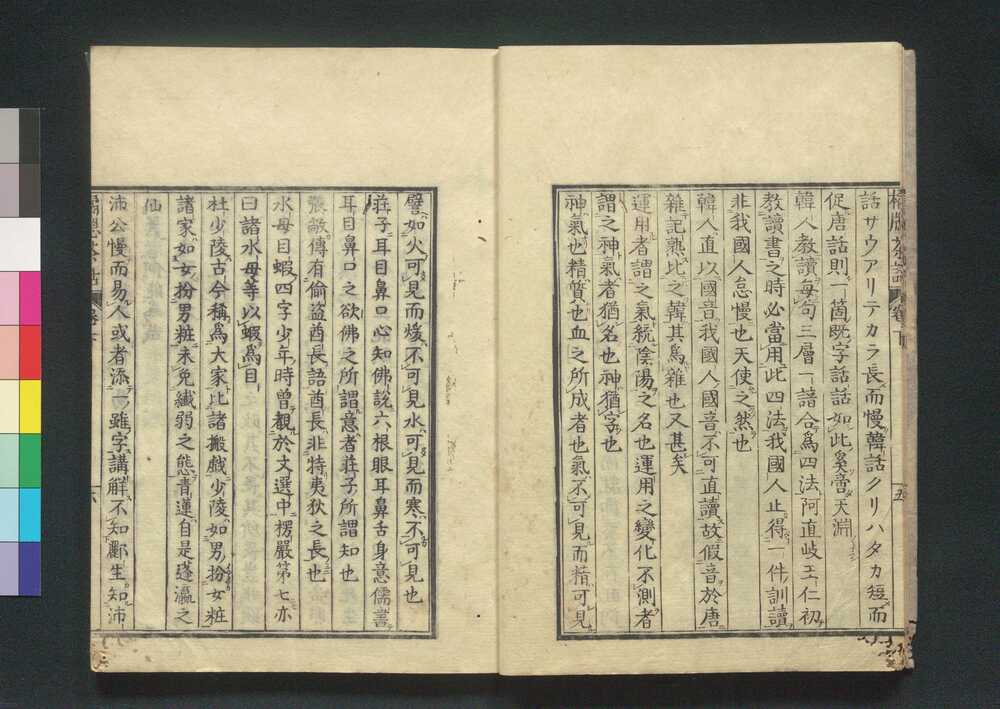 話サウアリテカラ長而慢韓話クリハタカ短而
促唐話則一箇既字話話如此奚啻天淵
韓人教讀每句三層一諳合爲四法阿直岐王仁初
教讀書之時必當用此四法我國人止得一件訓讀
非我國人怠慢也天使之然也
韓人直以國音我國人國音不可直讀故假音於唐
雜記熟比之韓其爲雜也又甚矣
運用者謂之氣統陰陽之名也運用之變化不測者
謂之神氣者猶名也神猶字也
神氣也精質也血之所成者也氣不可見而精可見
譬如火可見而煖不可見水可見而寒不可見也
莊子耳目鼻口心知佛説六根眼耳鼻舌身意儒書
耳目鼻口之欲佛之所謂意者莊子所謂知也
張敞傳有偷盗酋長語酋長非特夷狄之長也
水母目蝦四字少年時曾觀於文選中楞嚴第七亦
曰諸水母等以蝦爲目
杜少陵古今稱爲大家比諸搬戲少陵如男扮女粧
諸家如女扮男粧未免纖弱之態青蓮自是蓬瀛之
仙
沛公慢而易人或者添一雖字講解不知酈生知沛